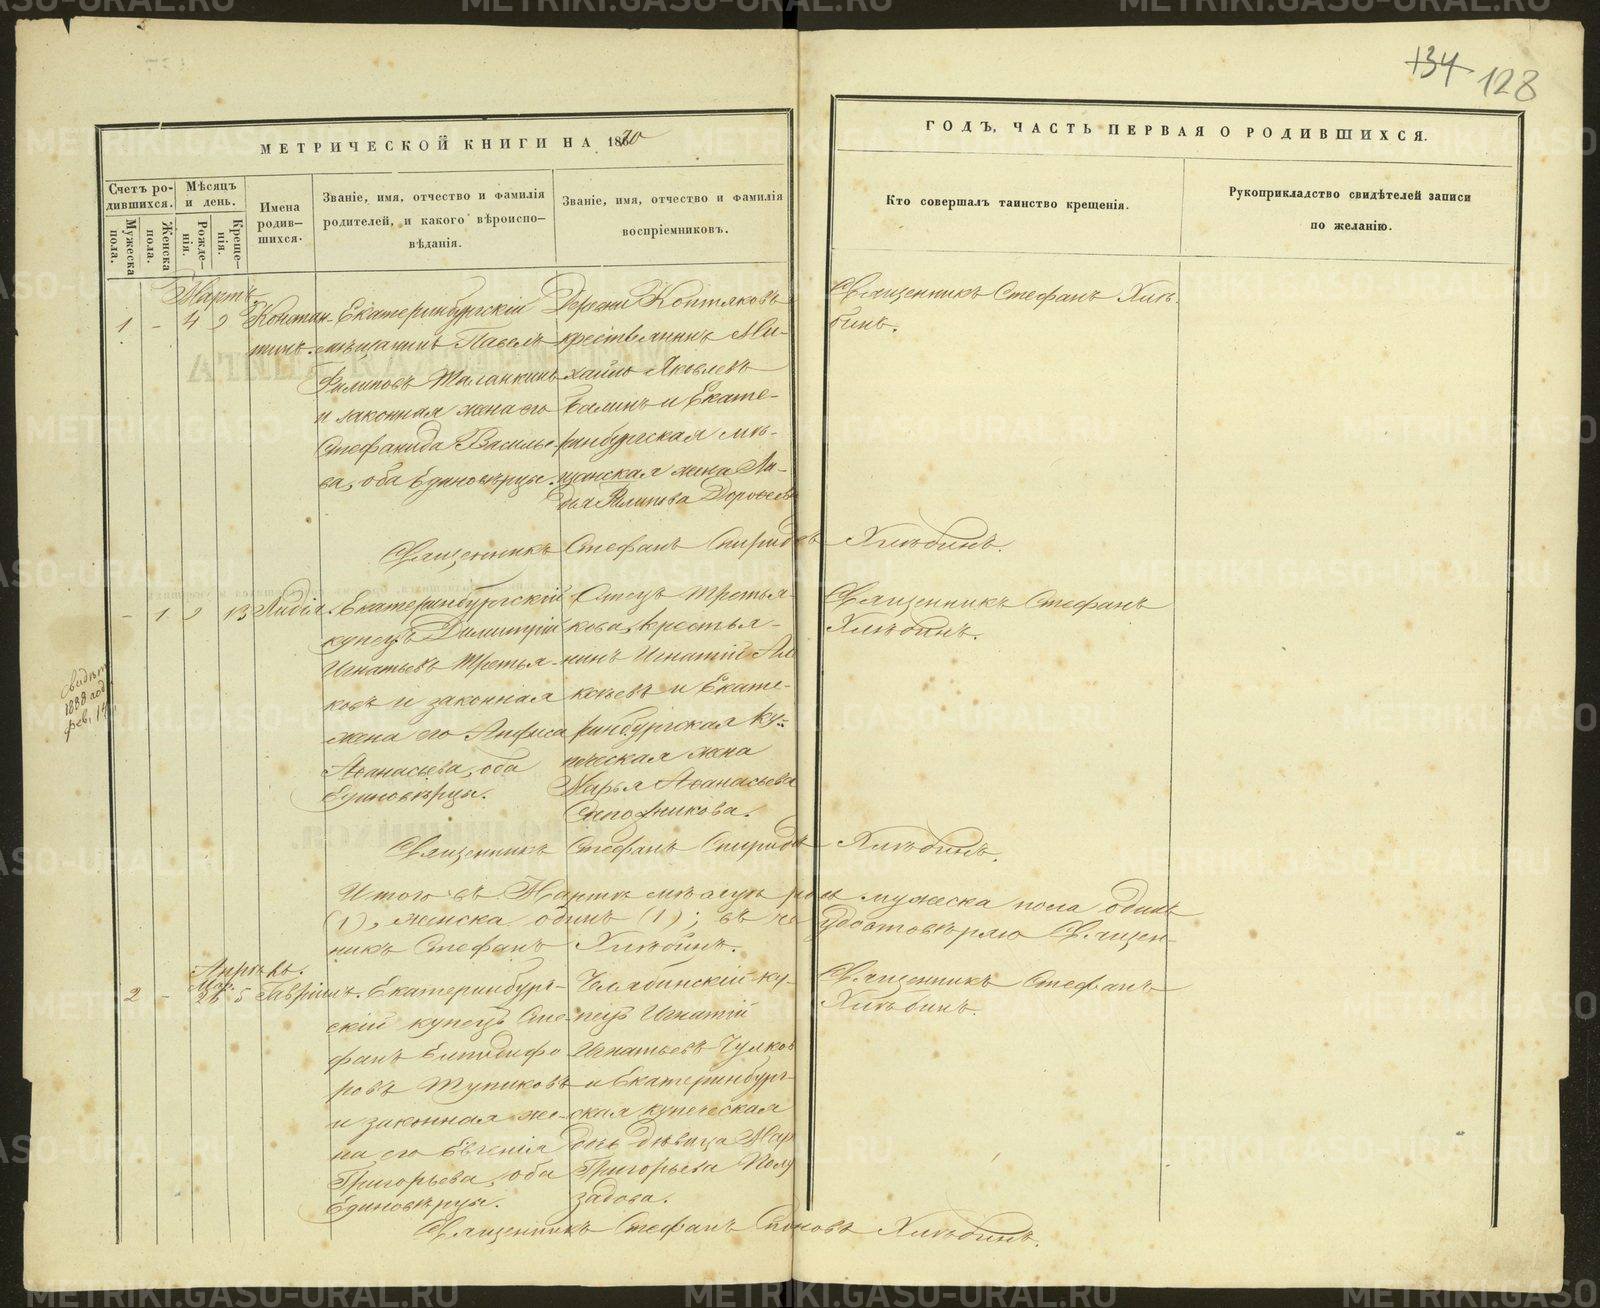 134 128
МЕТРИЧЕСКОЙ КНИГИ НА 1870
ГОДЪ, ЧАСТЬ ПЕРВАЯ О РОДИВШИХСЯ.
Счетъ ро-
дившихся.
Мужеска
пола.
Женска
пола.
Мѣсяцъ
и день.
Рожде-
нія.
Креще-
нія.
Имена
родив-
шихся.
Званіе, имя, отчество и фамилія
родителей, и какого вѣроиспо-
вѣданія.
Званіе, имя, отчество и фамилія
воспріемниковъ.
Кто совершалъ таинство крещенія.
Рукоприкладство свидѣтелей записи
по желанію.
Мартъ
1 - 4 9
Констан-
тинъ.
Екатеринбургскій
мѣщанинъ Павелъ
Филиповъ Таланкинъ
и законная жена его
Стефанида Василье-
ва, оба Единовѣрцы.
Деревни Коптяковъ
крестьянинъ Ми-
хайло Яковлевъ
Балинъ и Екате-
ринбургская мѣ-
щанская жена
Филипова
Священникъ Стефанъ Хлѣ-
бинъ.
Священникъ Стефанъ Хлѣбинъ.
- 1 9 13
Лидія.
Екатеринбургскій
купецъ Димитрій
Игнатьевъ Третья-
ковъ и законная
жена его Анфиса
Аѳанасьева, оба
Единовѣрцы.
Отецъ Третья-
кова, крестья-
нинъ Игнатій
и Екате-
ринбургская ку-
печеская жена
Марья Аѳанасьева
Сапожникова.
Священникъ Стефанъ
Хлѣбинъ.
1888 год
фев. 14
Священникъ Стефанъ Хлѣбинъ.
Итого въ Мартѣ мѣсяцѣ мужеска пола одинъ
(1), женска одинъ (1); въ удостовѣряю Священ-
никъ Стефанъ Хлѣбинъ.
Апрѣль.
Мар.
2 - 26 5
Гавріилъ.
Екатеринбург-
скій купецъ Сте-
фанъ Елпидифо
ровъ Тупиковъ
и законная же-
на его Евгенія
Григорьева, оба
Единовѣрцы.
Челябинскій ку-
пецъ Игнатій
Игнатьевъ Чулков
и Екатеринбург-
ская купеческая
дочь дѣвица Мар
Григорьева Полу
задова.
Священникъ Стефанъ
Хлѣбинъ.
Священникъ Стефанъ Хлѣбинъ.
METRIKI.GASO-URAL.RU